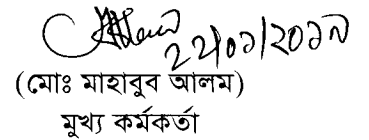 ২২/০১/২০১৯
(মোঃ মাহাবুব আলম)
মুখ্য কর্মকর্তা